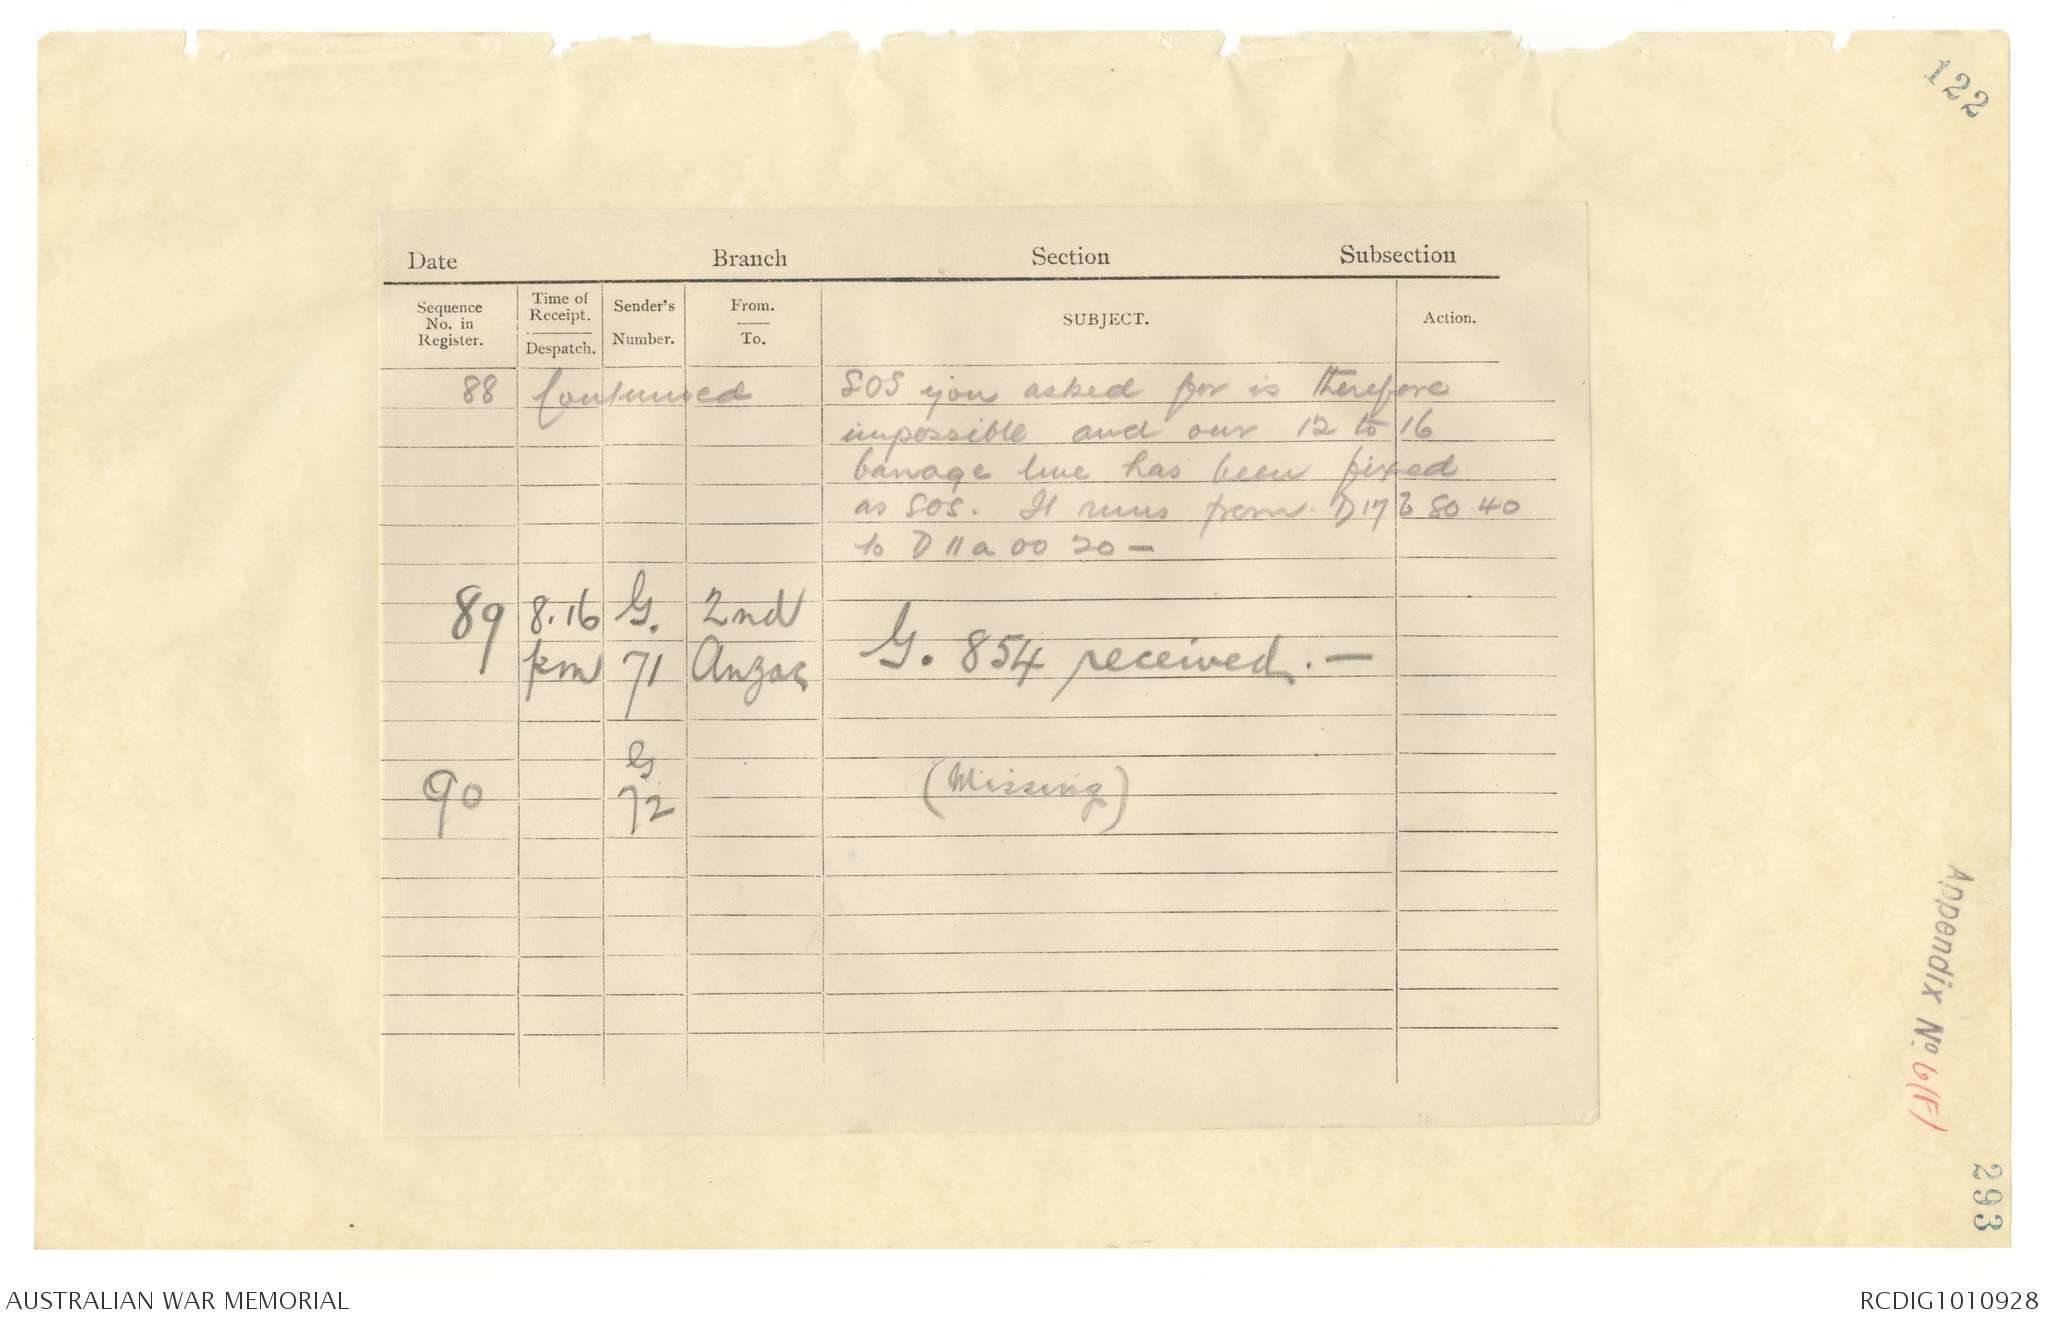 122
Date Branch Section Subsection
Sequence No. in Register. Time of Receipt. Despatch. Sender's Number. From. To. SUBJECT. Action.
88 Continued SOS you asked for is therefore
impossible and our 12 to 16
barrage line has been fixed
as SOS. It runs from D17 b 80 40
to D 11 a 00 20 —
89 8.16 G. 2nd
pm 71 Anzac G. 854 received. —
G
90 72 (Missing)
Appendix No. 6(F)
293
AUSTRALIAN WAR MEMORIAL RCDIG1010928